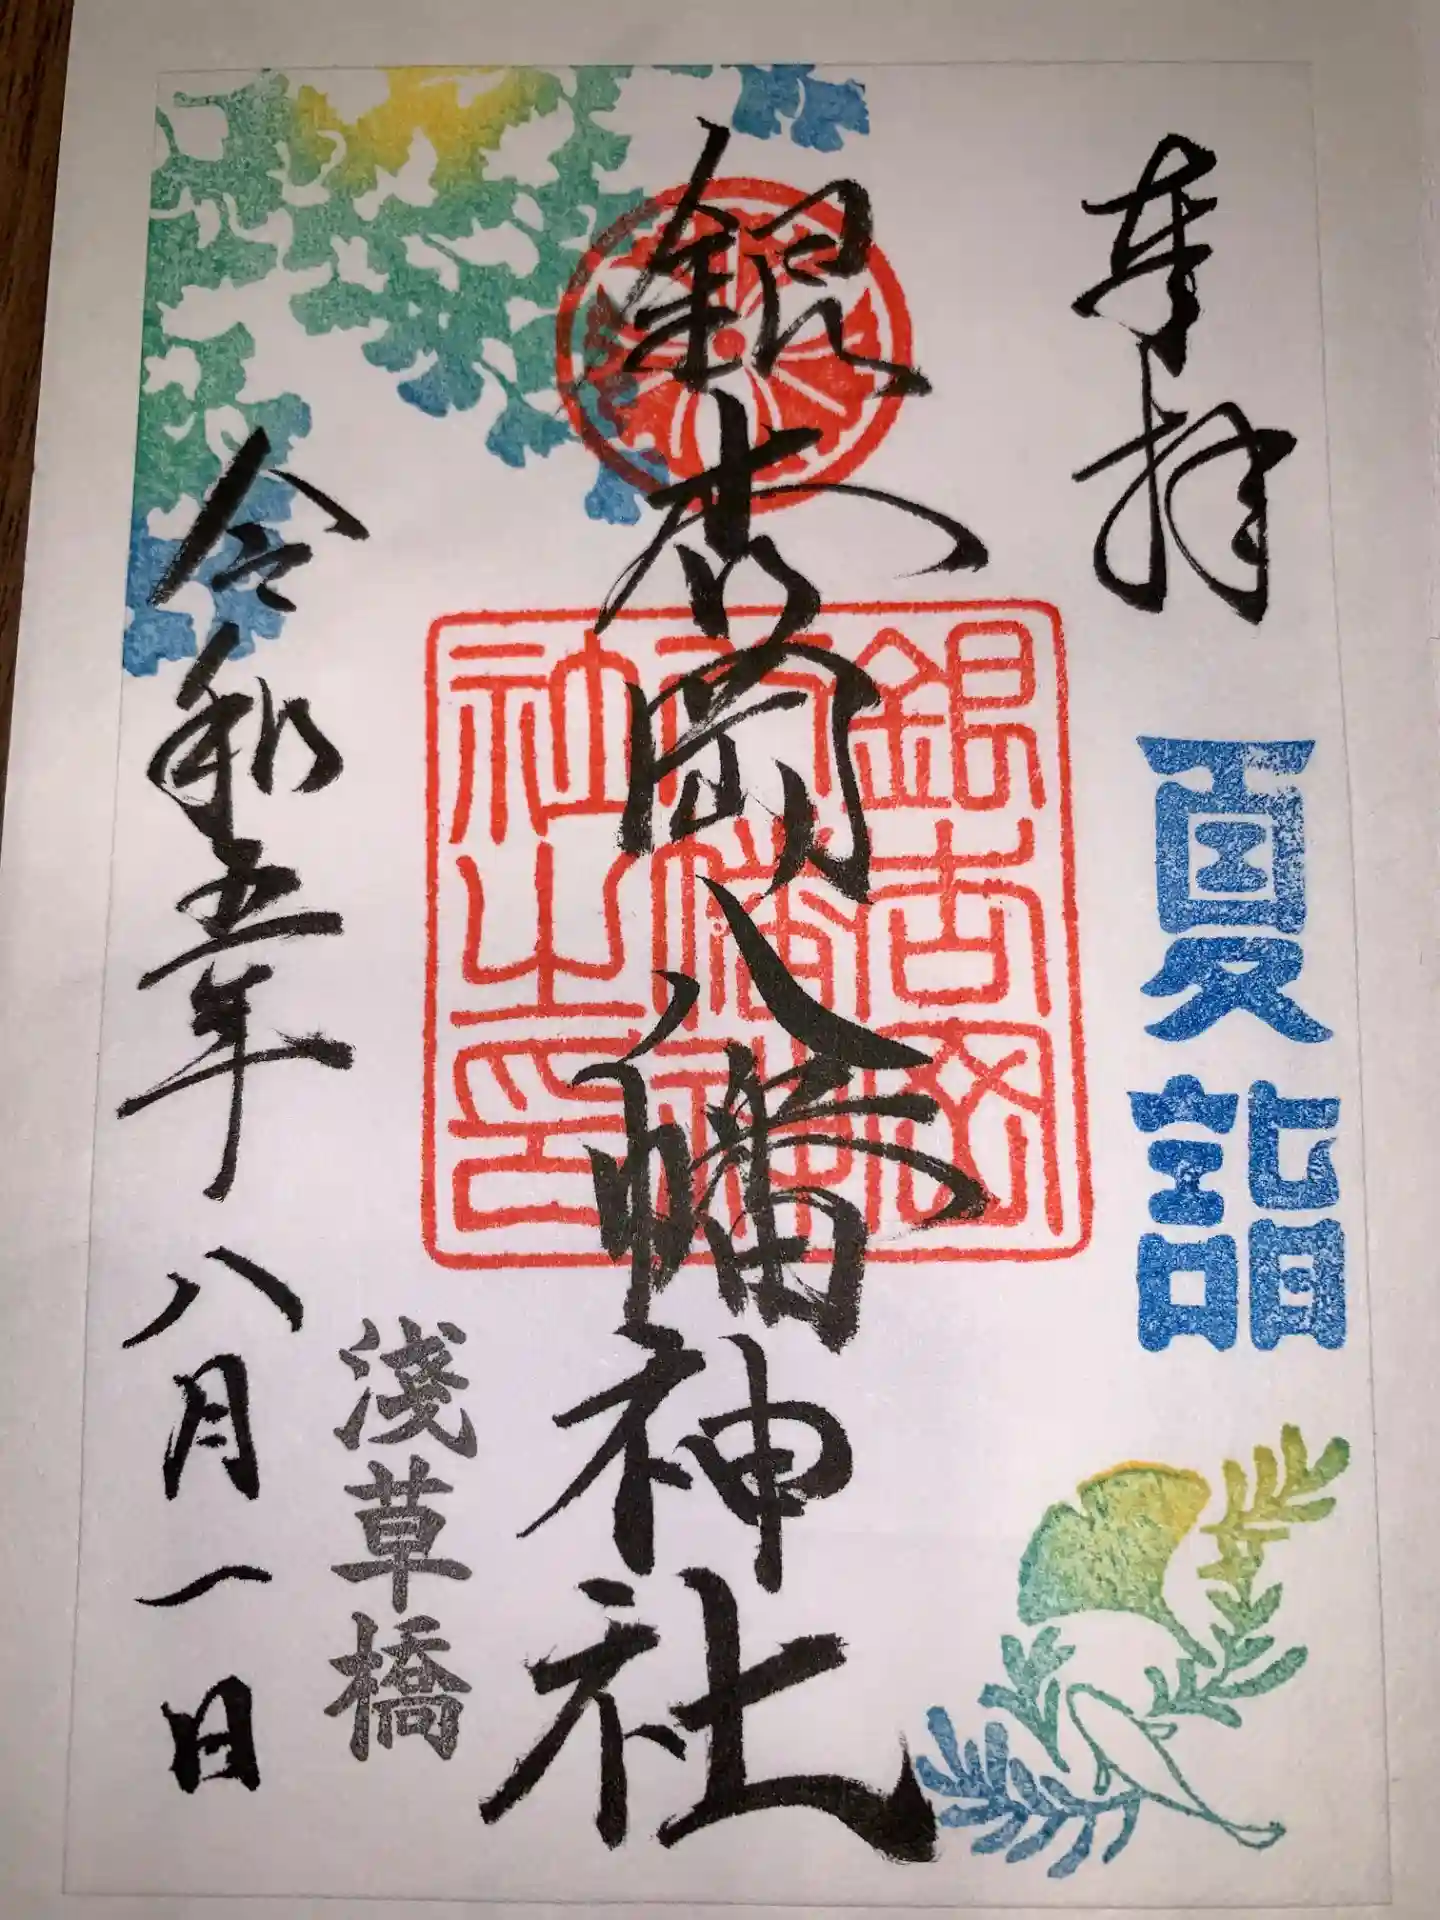 奉拝
夏詣
銀杏岡八幡神社
銀杏岡
八幡神
社之印
浅草橋
令和五年八月一日